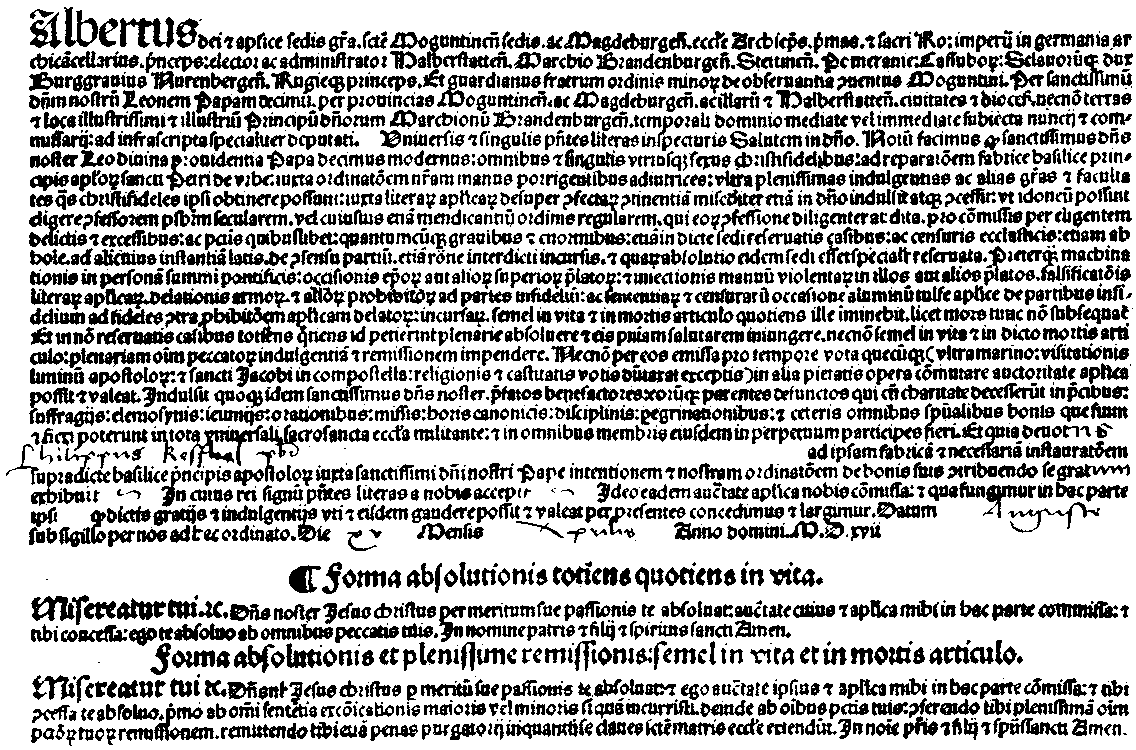 Albertus dei ⁊ aplice sedis gr̃a. sctẽ Moguntineñ sedis. ac Magdeburgeñ. eccl̃e Archiep̃s. p̃mas. ⁊ sacri Ro: imperij in germania ar
chicãcellarius. p̃nceps: elector ac administrator Halberstatteñ. Marchio Brandenburgeñ. Stettineñ. Pomeranie: Cassuboꝝ: Sclauorũqꝫ dux
Burggrauius Nurenbergeñ. Rugieqꝫ princeps. Et guardianus fratrum ordinis minoꝝ de obseruantia ꝯuentus Moguntini. Per sanctissimũ
dñm nostrũ Leonem Papam decimũ. per prouincias Moguntineñ. ac Magdeburgeñ. ac illarũ ⁊ Halberstatteñ. ciuitates ⁊ dioceẽ. necnõ terras
⁊ loca illustrissimi ⁊ illustriũ Principũ dñorum Marchionũ Brandenburgeñ. temporali dominio mediate vel immediate subiecta nuncij ⁊ com-
missarij: ad infrascripta specialiter deputati. Vniuersis ⁊ singulis p̃ntes literas inspecturis Salutem in dño. Notũ facimus ꝙ sanctissimus dñs
noster Leo diuina prouidentia Papa decimus modernus: omnibus ⁊ singulis vtriusqꝫ sexus christifidelibus: ad reparatõem fabrice basilice prin-
cipis apl̃oꝝ sancti Petri de vrbe: iuxta ordinatõem nr̃am manus porrigentibus adiutrices: vltra plenissimas indulgentias ac alias gr̃as ⁊ faculta
tes q̃s christifideles ipsi obtinere possunt: iuxta literaꝝ aplicaꝝ desuper ꝯfectaꝝ ꝯtinentiã misericorditer etiã in dño indulsit atqꝫ ꝯcessit: vt idoneũ possint
eligere ꝯfessorem p̃sbrm̃ secularem. vel cuiusuis etiã mendicantiũ ordinis regularem. qui eoꝝ ꝯfessione diligenter audita. pro cõmissis per eligentem
delictis ⁊ excessibus: ac pctis quibuslibet: quantumcũqꝫ grauibus ⁊ enormibus: etiã in dicte sedi reseruatis casibus: ac censuris ecclesiasticis: etiam ab
hoĩe. ad alicuius instantiã latis. de ꝯsensu partiũ. etiã rõne interdicti incursis. ⁊ quaꝝ absolutio eidem sedi esset specialiter reseruata. Preterqꝫ machina
tionis in personã summi pontificis: occisionis ep̃oꝝ aut alioꝝ superioꝝ p̃latoꝝ: ⁊ iniectionis manuũ violentaꝝ in illos aut alios p̃latos. falsificatõis
literaꝝ aplicaꝝ. delationis armoꝝ. ⁊ alioꝝ prohibitoꝝ ad partes infideliũ: ac sententiaꝝ ⁊ censurarũ occasione aluminũ tulfe aplice de partibus infi-
delium ad fideles ꝯtra ꝓhibitõem aplicam delatoꝝ: incursaꝝ. semel in vita ⁊ in mortis articulo quotiens ille imminebit. licet mors tunc nõ subsequat̃
Et in nõ reseruatis casibus totiens q̃tiens id petierint plenarie absoluere ⁊ eis pniam salutarem iniungere. necnõ semel in vita ⁊ in dicto mortis arti
culo: plenariam oĩm peccatoꝝ indulgentiã ⁊ remissionem impendere. Necnõ per eos emissa pro tempore vota quecũqꝫ (vltramarino: visitationis
liminũ apostoloꝝ: ⁊ sancti Jacobi in compostella: religionis ⁊ castitatis votis dũtaxat exceptis) in alia pietatis opera cõmutare auctoritate aplica
possit ⁊ valeat. Indulsit quoqꝫ idem sanctissimus dñs noster. p̃fatos benefactores: eorũqꝫ parentes defunctos qui cũ charitate decesserũt in p̃cibus:
suffragijs: elemosynis: ieiunijs: orationibus: missis: horis canonicis: disciplinis: peregrinationibus: ⁊ ceteris omnibus sp̃ualibus bonis que fiunt
⁊ fieri poterunt in tota vniuersali sacrosancta eccl̃ia militante: ⁊ in omnibus membris eiusdem in perpetuum participes fieri. Et quia deuotus
Philippus ad ipsam fabricã ⁊ necessariã instauratõem
supradicte basilice p̃ncipis apostoloꝝ iuxta sanctissimi dñi nostri Pape intentionem ⁊ nostram ordinatõem de bonis suis ꝯtribuendo se gratum
exhibuit In cuius rei signũ p̃ntes literas a nobis accepit Ideo eadem auctoritate aplica nobis cõmissa: ⁊ qua fungimur in hac parte
ipsi ꝙ dictis gratijs ⁊ indulgentijs vti ⁊ eisdem gaudere possit ⁊ valeat per presentes concedimus ⁊ largimur. Datum Auguste
sub sigillo per nos ad hec ordinato. Die xv Mensis Aprilis Anno domini. M. D. xvij
¶ Forma absolutionis totiens quotiens in vita.
Misereatur tui ⁊c. Dñs noster Jesus christus per meritum sue passionis te absoluat: auctoritate cuius ⁊ aplica mihi in hac parte commissa: ⁊
tibi concessa: ego te absoluo ab omnibus peccatis tuis. In nomine patris ⁊ filij ⁊ spiritus sancti Amen.
Forma absolutionis et plenissime remissionis: semel in vita et in mortis articulo.
Misereatur tui ⁊c. Dñs noster Jesus christus p meritũ sue passionis te absoluat: ⁊ ego auctoritate ipsius ⁊ aplica mihi in hac parte cõmissa: ⁊ tibi
ꝯcessa te absoluo. p̃mo ab oĩ sentẽtia excõicationis maioris vel minoris si quã incurristi. deinde ab oĩbus pctis tuis: ꝯferendo tibi plenissimã oĩm
pctõꝝ tuoꝝ remissionem. remittendo tibi etiã penas purgatorij inquantũ se claues sctẽ matris eccl̃e extendũt. In noĩe p̃ris ⁊ filij ⁊ sp̃ussancti Amen.